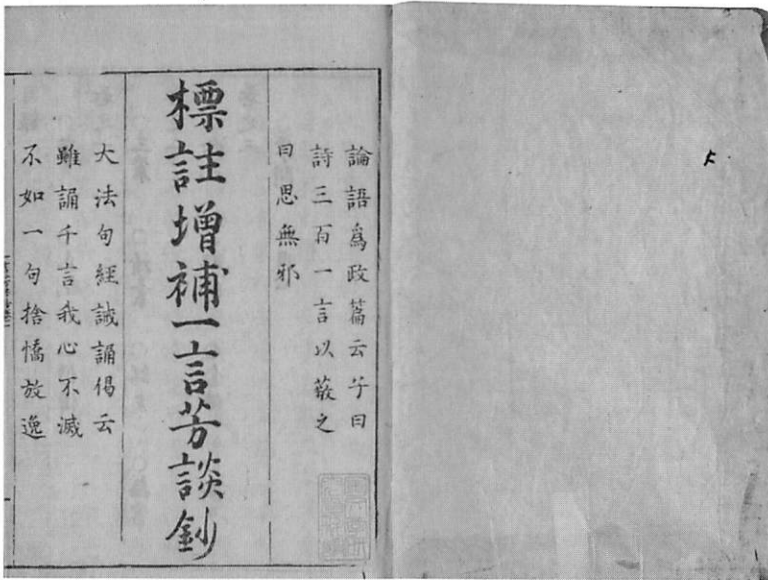 論語爲政篇云子曰
詩三百一言以蔽之
曰思無邪
標註增補一言芳談鈔
大法句經誡誦偈云
雖誦千言我心不滅
不如一句捨憍放逸